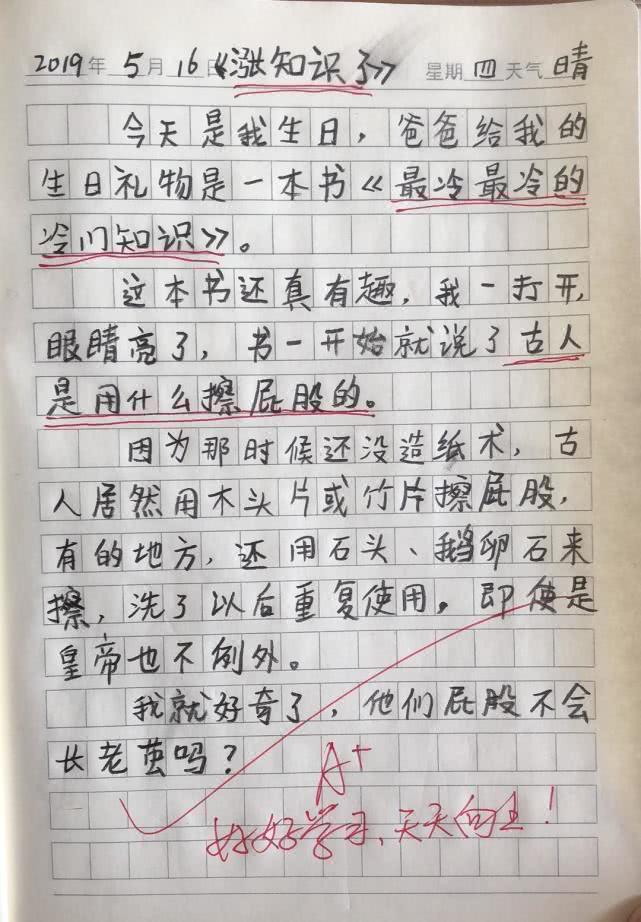 2019年 5月 16日《涨知识了》 星期 四 天气 晴
今天是我生日，爸爸给我的
生日礼物是一本书《最冷最冷的
冷门知识》。
这本书还真有趣，我一打开，
眼睛亮了，书一开始就说了古人
是用什么擦屁股的。
因为那时候还没造纸术，古
人居然用木头片或竹片擦屁股，
有的地方，还用石头、鹅卵石来
擦，洗了以后重复使用。即使是
皇帝也不例外。
我就好奇了，他们屁股不会
长老茧吗？
A+
好好学习、天天向上！